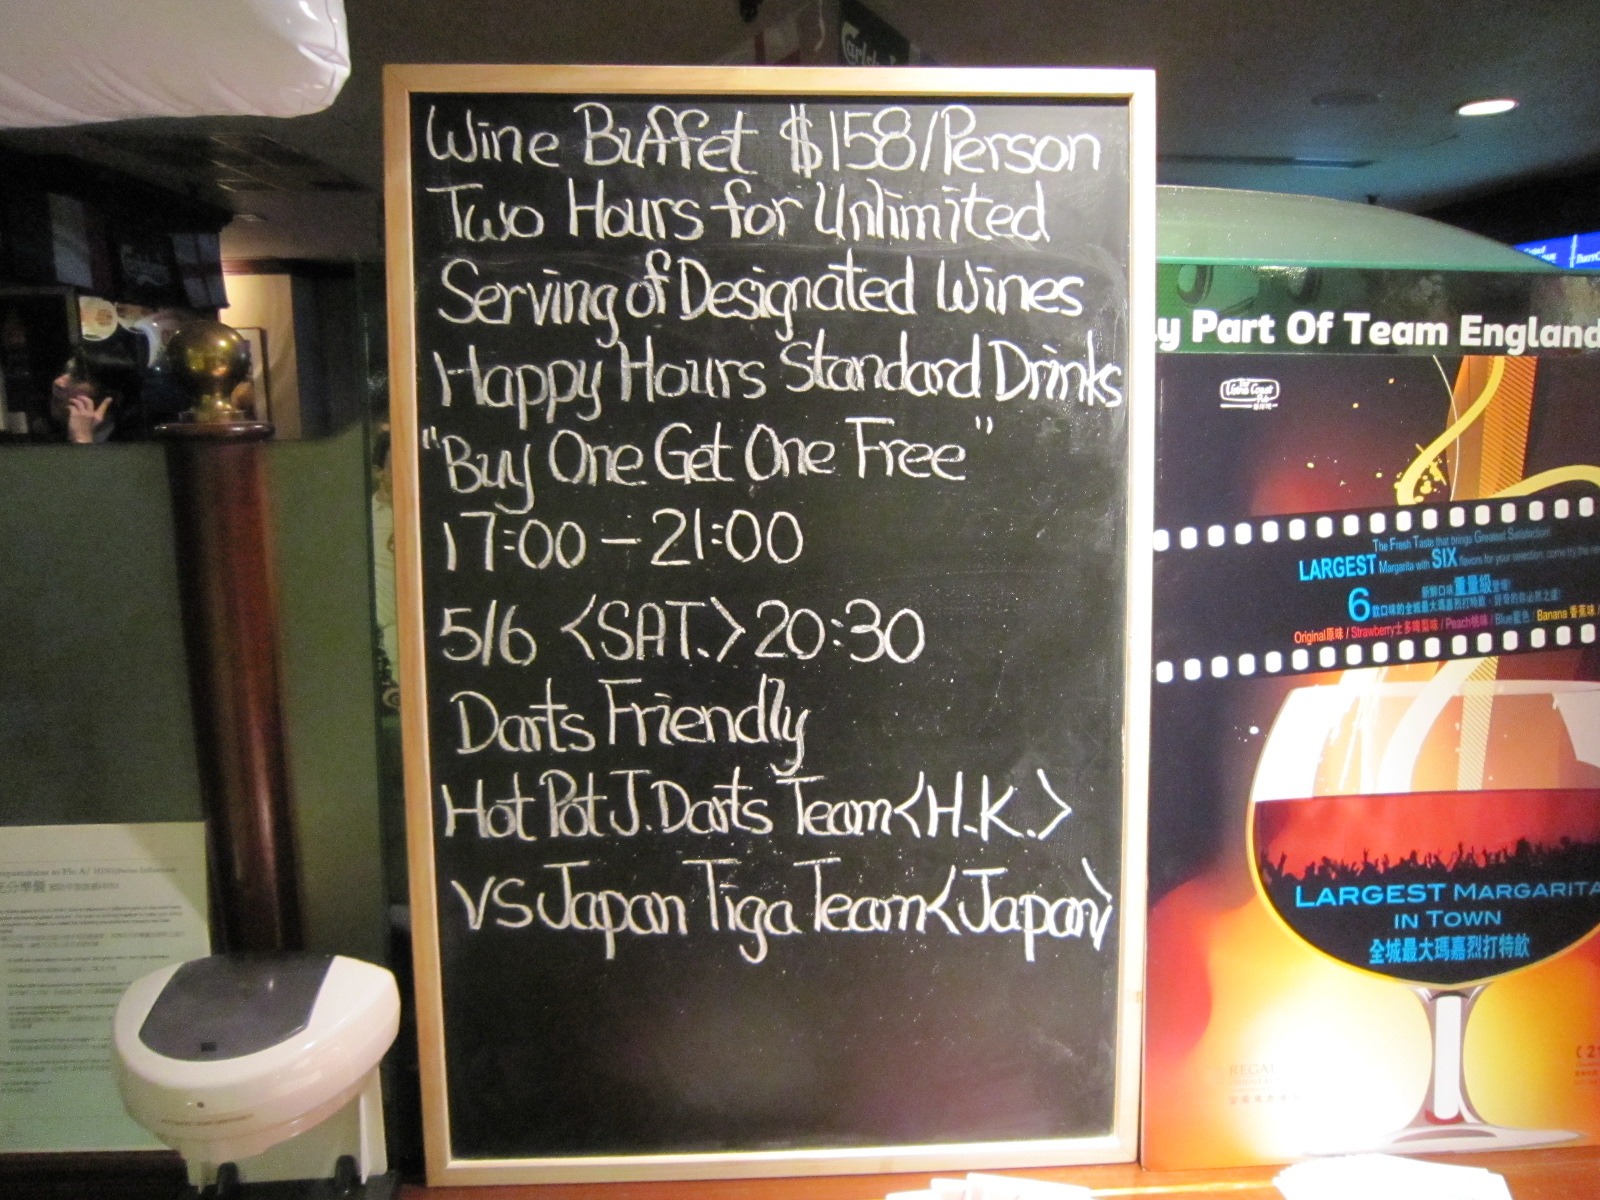 Wine Buffet $158/Person
Two Hours for Unlimited
Serving of Designated Wines
Happy Hours Standard Drinks
"Buy One Get One Free"
17:00 – 21:00
5/6 <SAT.> 20:30
Darts Friendly
Hot Pot J. Darts Team <H.K.>
VS Japan Tiga Team <Japan>
Carlsberg
y Part Of Team England
The Fresh Taste that brings Greatest Satisfaction!
LARGEST Margarita with SIX flavors for your selection, come try the
6
Original原味 / Strawberry士多啤梨味 / Peach桃味 / Blue藍色 / Banana 香蕉味 /
LARGEST MARGARITA
IN TOWN
全城最大瑪嘉烈打特飲
REGAL